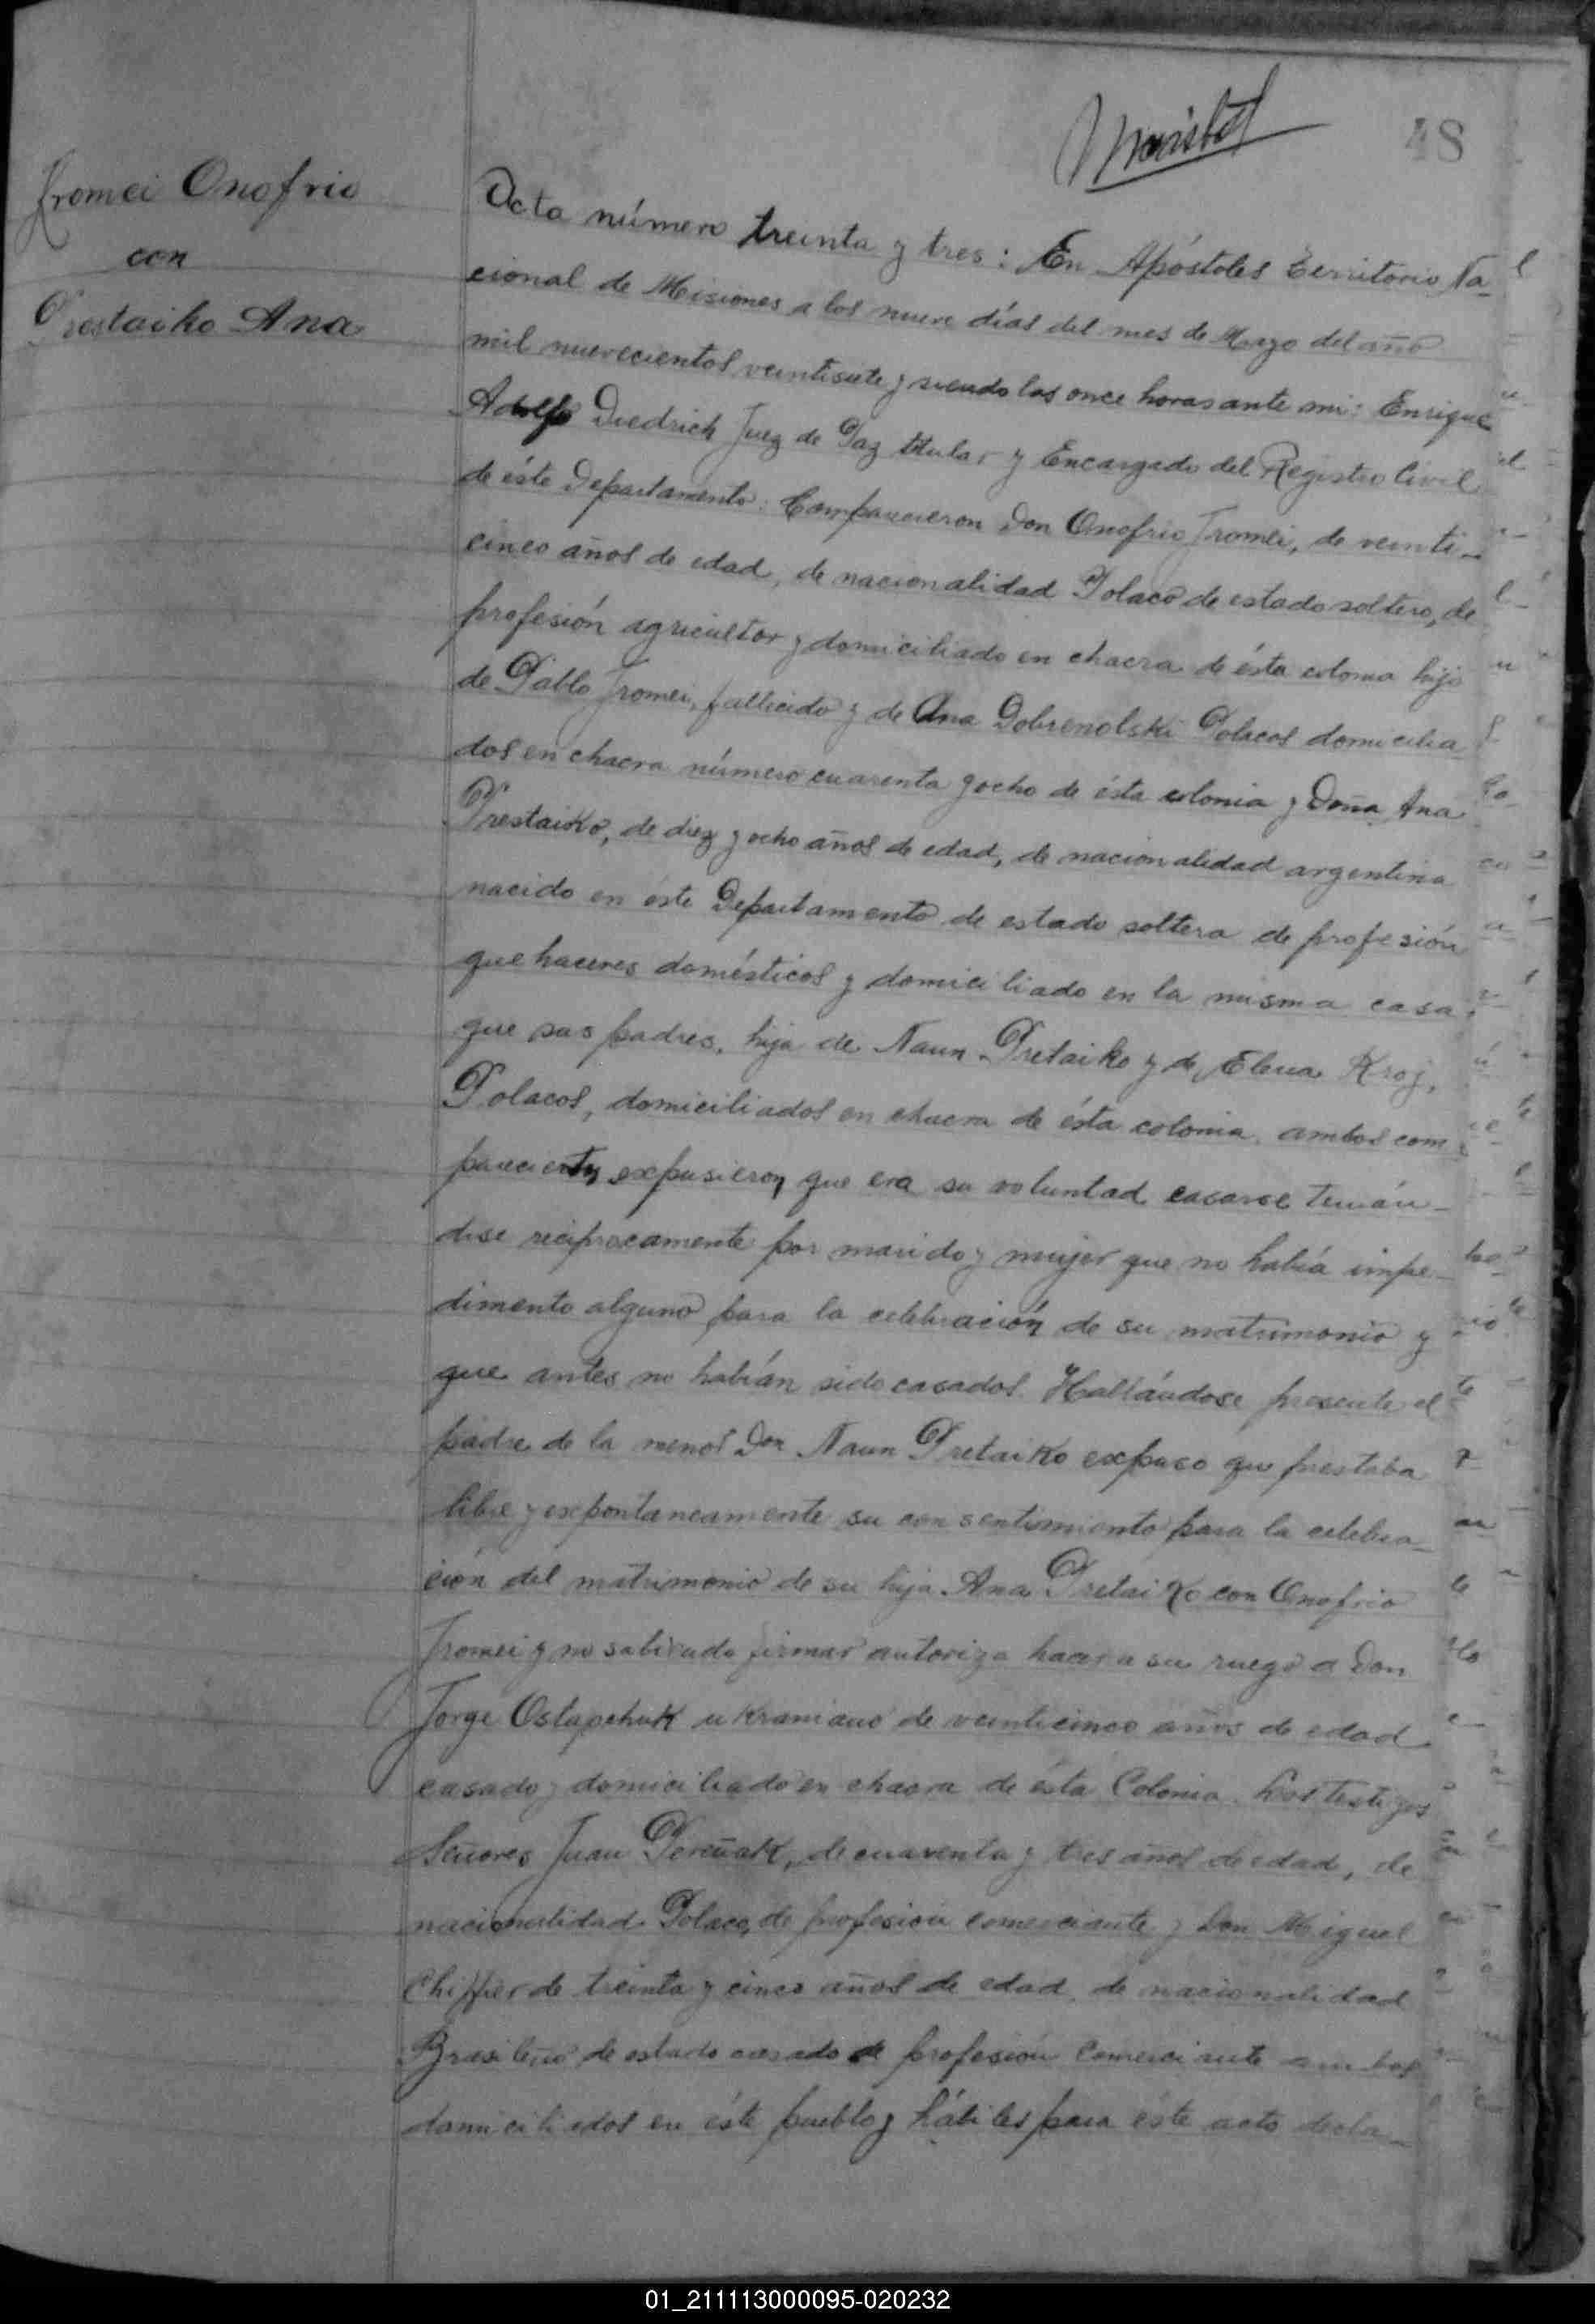 48
Jromei Onofrio
con
Prestaiko Ana
Acta número treinta y tres: En Apóstoles Territorio Na-
cional de Misiones a los nueve días del mes de Mayo del año
mil nuevecientos veintisiete y siendo las once horas ante mi: Enrique
Adolfo Diedrich Juez de Paz titular y Encargado del Registro Civil
de éste Departamento: Comparecieron Don Onofrio Jromei, de veinti-
cinco años de edad, de nacionalidad Polaco de estado soltero, de
profesión agricultor y domiciliado en chacra de ésta colonia hijo
de Pablo Jromei, fallecido y de Ana Dobrenolski Polacos domicilia
dos en chacra número cuarenta y ocho de ésta colonia y Doña Ana
Prestaiko, de diez y ocho años de edad, de nacionalidad argentina
nacido en éste Departamento de estado soltera de profesión
quehaceres domésticos y domiciliado en la misma casa
que sus padres, hija de Naun Pretaiko y de Elena Kroj,
Polacos, domiciliados en chacra de ésta colonia. ambos com
parecientes expusieron que era su voluntad casarse tenién-
dose reciprocamente por marido y mujer que no había impe-
dimento alguno para la celebración de su matrimonio y
que antes no habían sido casados. Hallándose presente el
padre de la menor Don Naun Pretaiko expuso que prestaba
libre y expontaneamente su consentimiento para la celebra-
ción del matrimonio de su hija Ana Pretaiko con Onofrio
Jromei y no sabiendo firmar autoriza hacer a su ruego a Don
Jorge Ostapchuk ukraniano de veinticinco años de edad
casado y domiciliado en chacra de ésta Colonia. Los testigos
Señores Juan Pereñak, de cuarenta y tres años de edad, de
nacionalidad Polaco, de profesión comerciante y Don Miguel
Chiffer de treinta y cinco años de edad, de nacionalidad
Brasileño de estado casado de profesión Comerciante ambos
domiciliados en éste pueblo y hábiles para éste acto decla-
01_211113000095-020232